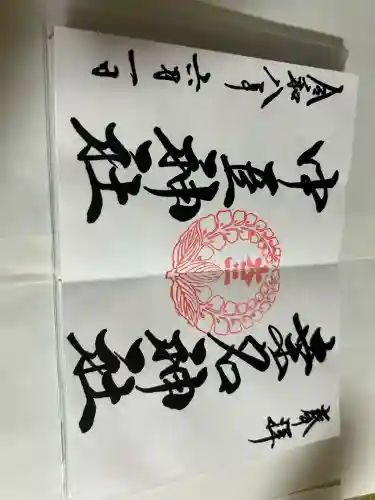 奉拝
桑名神社
中臣神社
令和八年六月一日